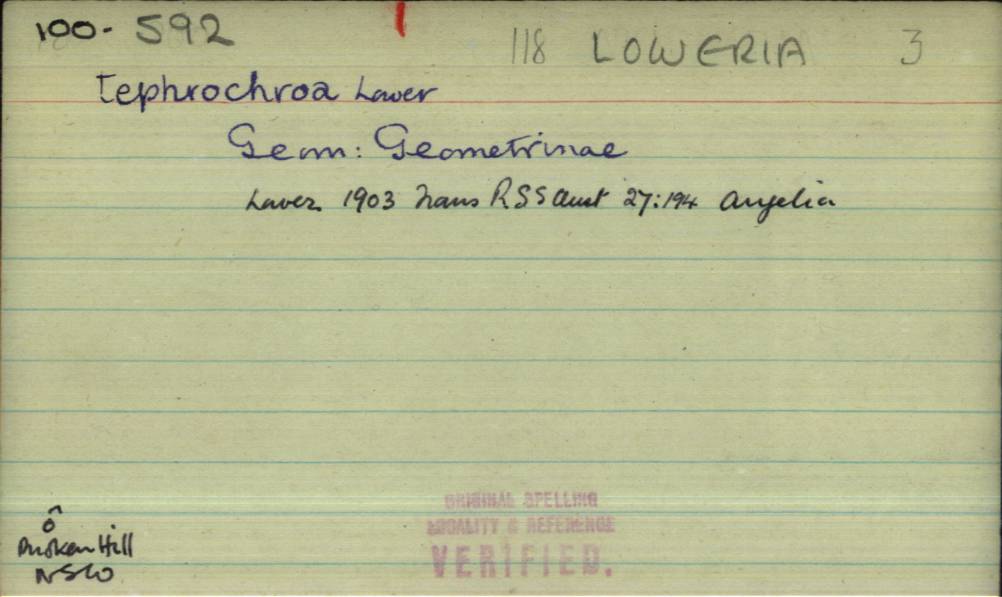 100- 592
118 LOWERIA 3
tephrochroa Lower
Geom: Geometrinae
Lower 1903 Trans RSSAust 27:194 Angelia
ORIGINAL SPELLING
LOCALITY & REFERENCE
VERIFIED.
Broken Hill
NSW